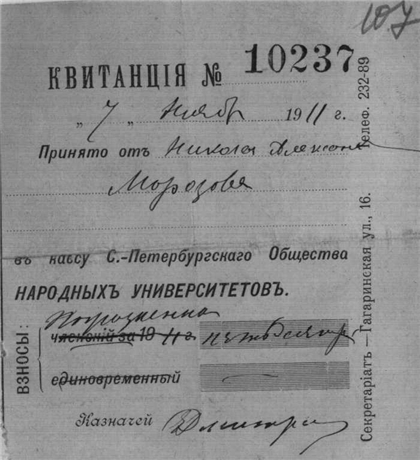 107
КВИТАНЦІЯ № 10237
„ 7 „ Ноябр 1911 г.
Принято отъ Никола
Морозова
въ кассу С.-Петербургскаго Общества
НАРОДНЫХЪ УНИВЕРСИТЕТОВЪ.
ВЗНОСЫ:
членскій за 1911 г.
единовременный
Казначей
Секретаріатъ—Гагаринская ул., 16. Телеф. 232-89